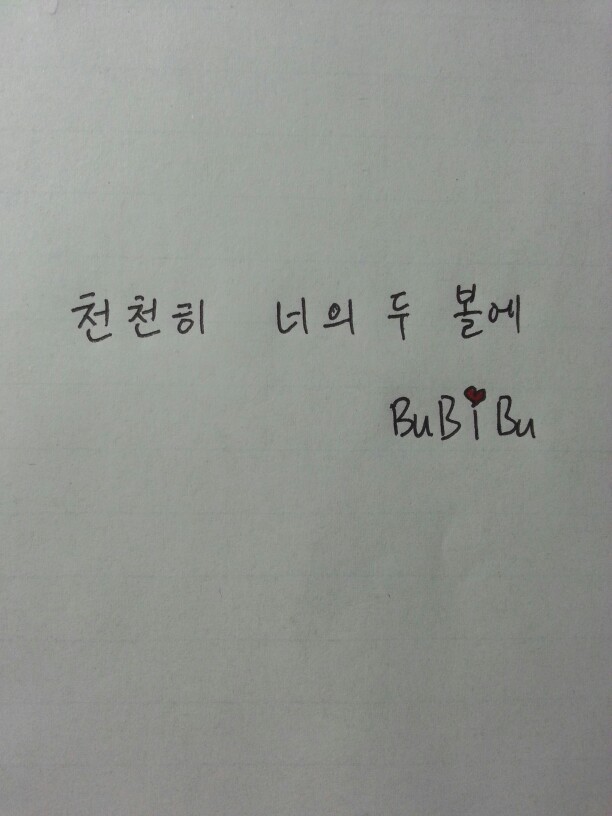 천천히 너의 두 볼에
BuBiBu